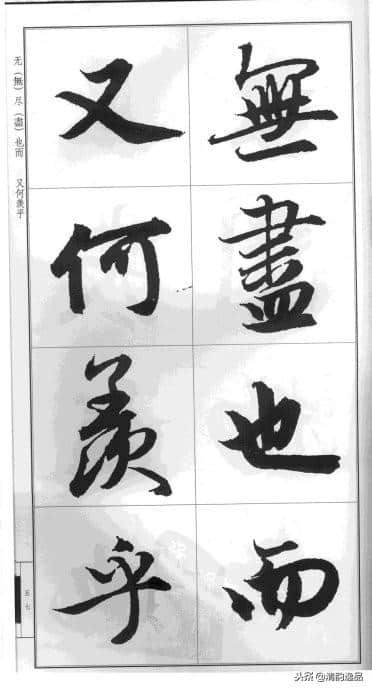 無盡也而
又何羨乎
无（無）尽（盡）也而 又何羨乎
五七
头条@清韵逸品